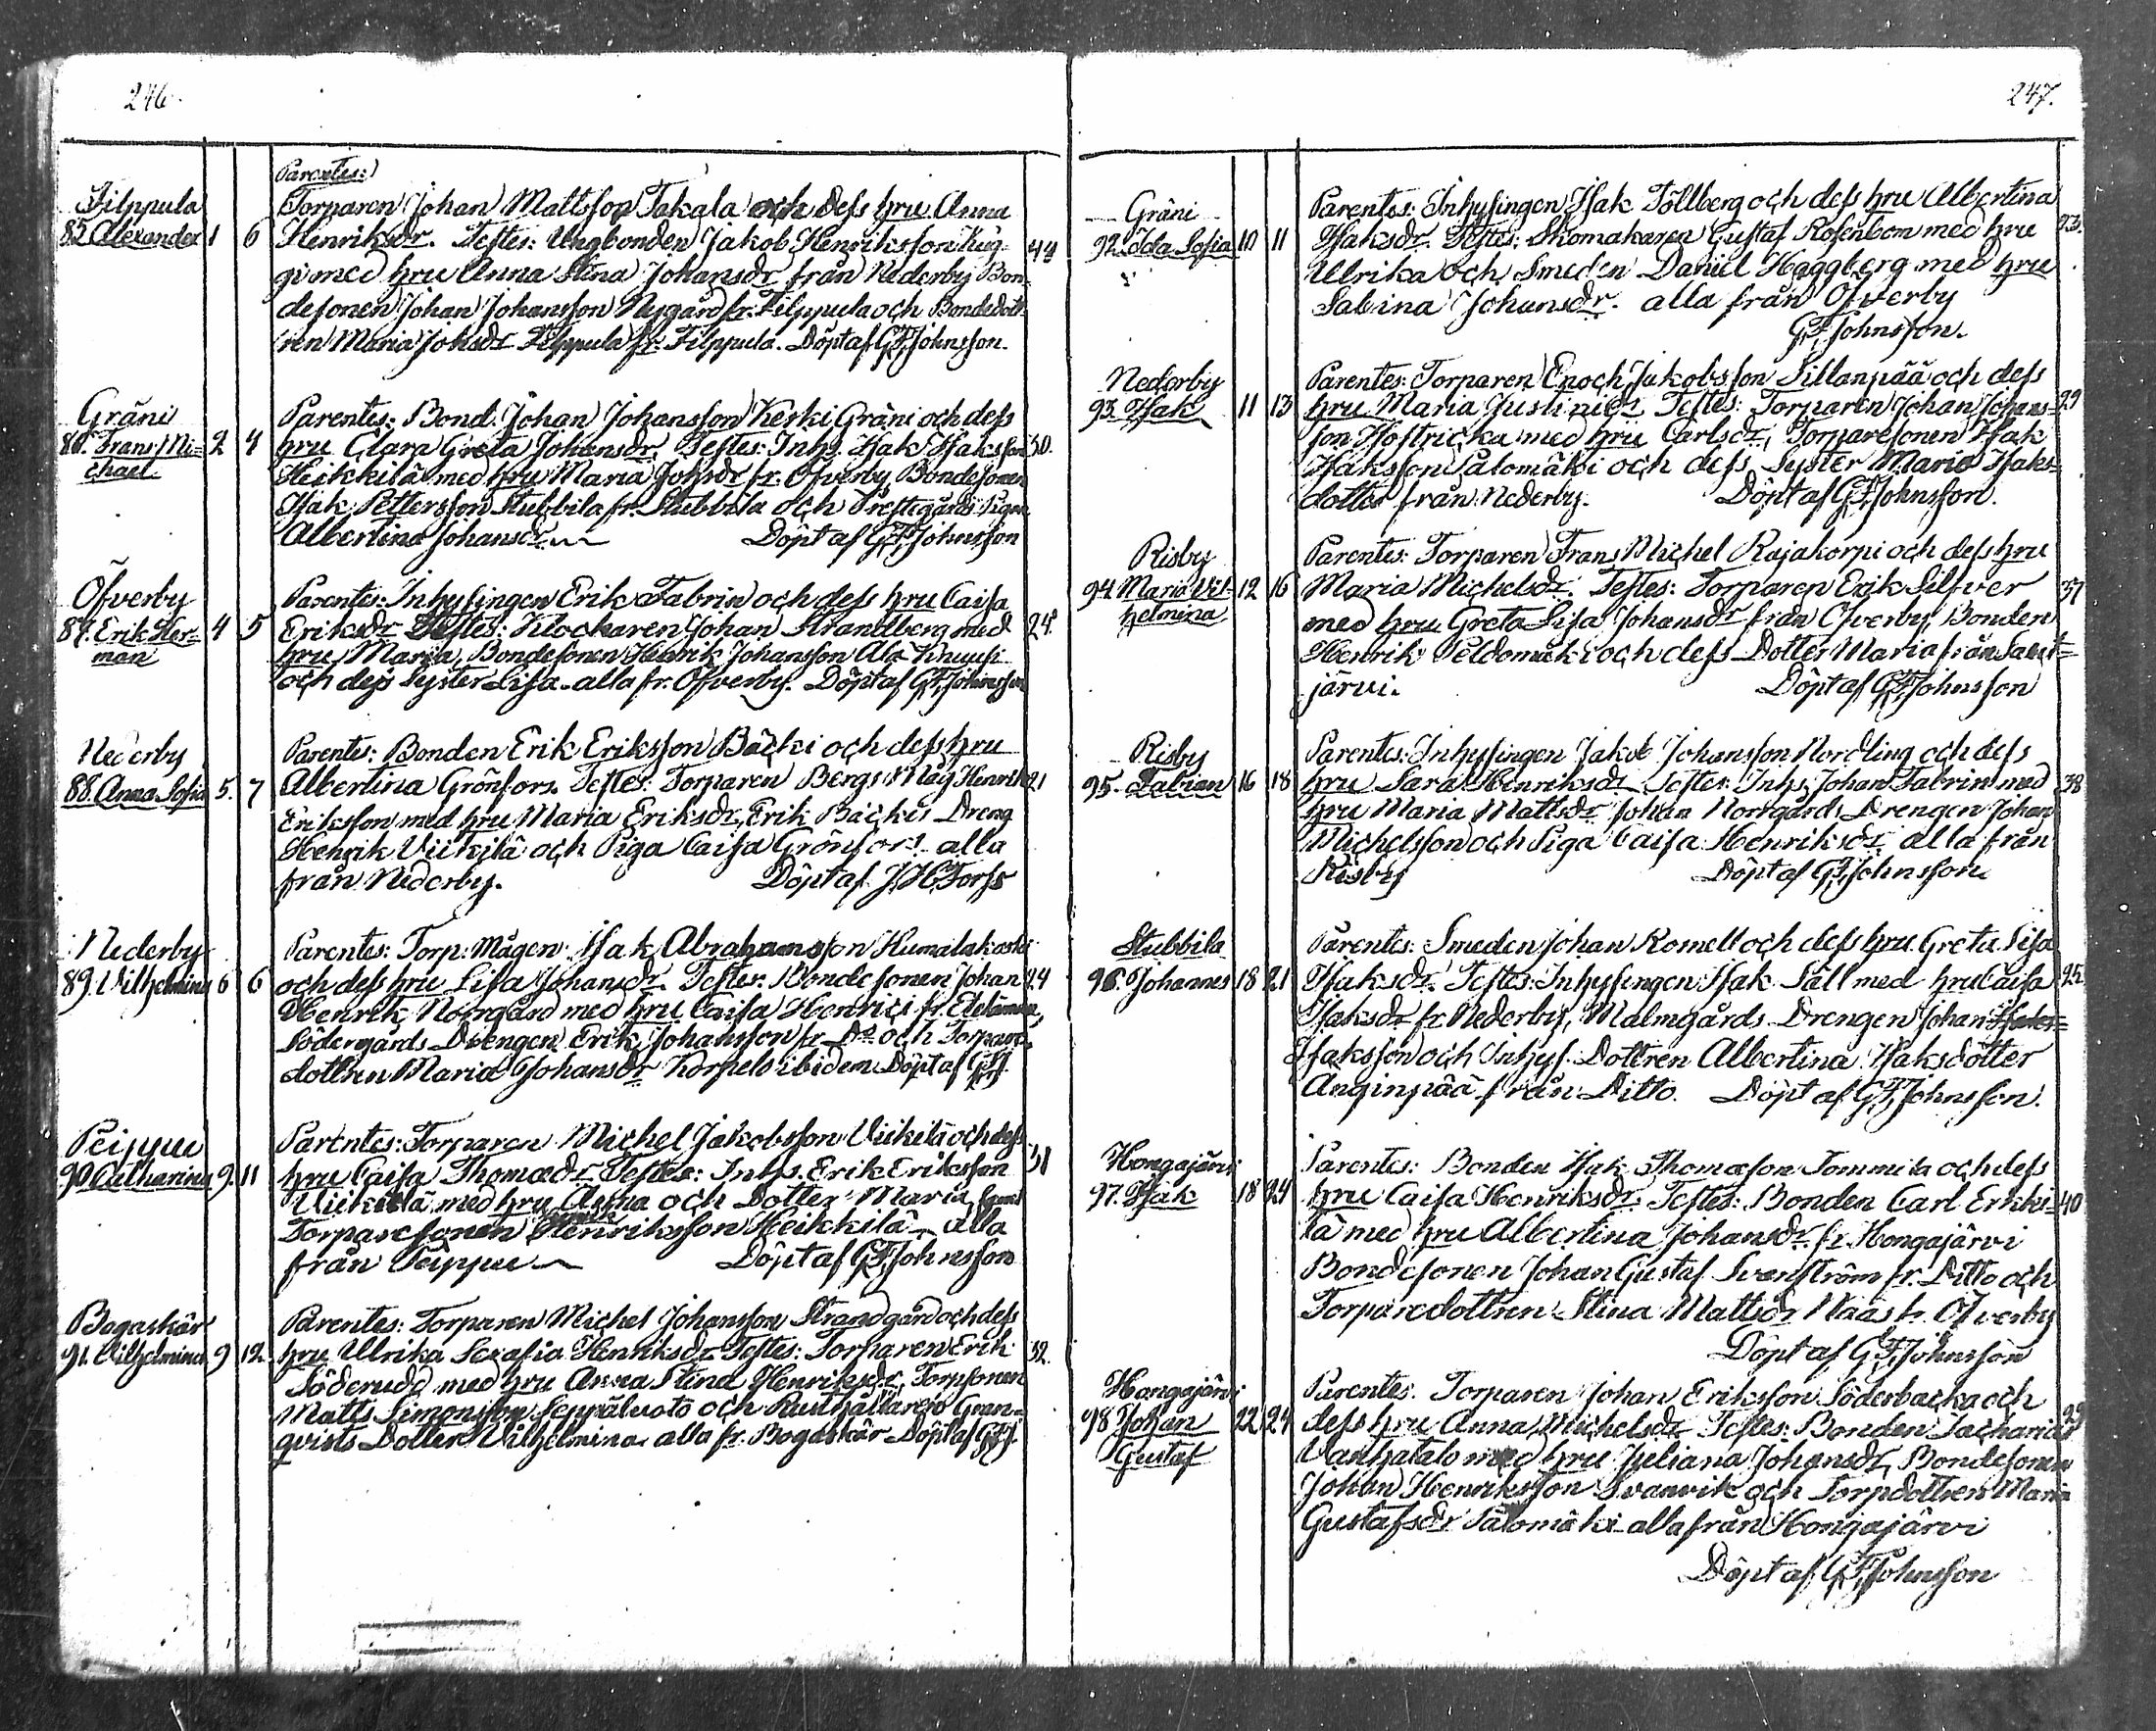 246.
Parentes:
Filppula
Torparen Johan Mattsson Takala och dess hru Anna
85 Alexander 1 6 Henriksdr. Testes: Ungbonden Jakob Henriksson Kug- 44
gi med hru Anna Stina Johansdr från Nederby Bon-
desonen Johan Johansson Nygård fr. Filppula och Bondedott-
ren Maria Johsdr Filppula fr. Filppula. Döpt af GFJohnsson.
Gräni
Parentes: Bond. Johan Johansson Keski Gräni och dess
86. Frans Mi= 2 4 hru Clara Greta Johansdr. Testes: Inhs. Isak Isaksson 30.
chael
Heikkilä med hru Maria Johsdr fr. Öfverby, Bondesonen
Isak Pettersson Stubbila fr. Stubbila och Prestegårds Pigan
Albertina Johansdr. Döpt af GFJohnsson
Öfverby
Parentes: Inhysingen Erik Fabrin och dess hru Caisa
87. Erik Her= 4 5 Eriksdr Testes: Klockaren Johan Strandberg med 24.
man
hru Maria, Bondesonen Henrik Johansson Ala Knuusi
och dess Syster Lisa. alla fr. Öfverby. Döpt af GFJohnsson
Nederby
Parentes: Bonden Erik Eriksson Bäcki och dess hru
88. Anna Sofia 5. 7 Albertina Grönfors. Testes: Torparen Bergs Måg Henrik 21
Eriksson med hru Maria Eriksdr, Erik Backis Dreng
Henrik Viikilä och Piga Caisa Grönfors alla
från Nederby. Döpt af JHTorss
Nederby
Parentes: Torp: Mågen: Isak Abrahamsson Humalakoski
89. Vilhelmina 6 6 och dess hru Lisa Johansdr. Testes: Bondesonen Johan 24
Henrik Norrgård med hru Caisa Henrici fr.
Södergårds Drengen Erik Johansson fr. Do och Torpare-
dottren Maria Johansdr Korpels ibidem Döpt af GFJ.
Peippu
Parentes: Torparen Michel Jakobsson Viikilä och dess
90. Catharina 9. 11 hru Caisa Thomædr Testes: Inhs. Erik Eriksson 31
Viikilä med hru Anna och Dotter Maria samt
Torparesonen Henriksson Heikkilä alla
från Peippu Döpt af GFJohnsson
Bogaskär
Parentes: Torparen Michel Johansson Strandgård och dess
91. Vilhelmina 9 12 hru Ulrika Serafia Henriksdr. Testes: Torparen Erik 32.
Söderudd med hru Anna Stina Henriksdr, Torpsonen
Matts Simonsson Seppäluoto och Rusthållaren Gran=
qvists Dotter Vilhelmina. alla fr. Bogaskär Döpt af GFJ.
247.
Gräni
Parentes: Inhysingen Isak Töllberg och dess hru Albertina
92. Ida Sofia 10 11 Isaksdr. Testes: Skomakaren Gustaf Rosenbom med hru 23.
Ulrika och Smeden Daniel Häggberg med hru
Sabina Johansdr. alla från Öfverby
GFJohnsson.
Nederby
Parentes: Torparen Enoch Jakobsson Sillanpää och dess
93. Isak 11 13 hru Maria Justinier Testes: Torparen Johan Johans= 29
son Hostricka med hru Carlsdr, Torparesonen Isak
Isaksson Salomäki och dess Syster Maria Isaks=
dotter från Nederby. Döpt af GFJohnsson.
Risby
Parentes: Torparen Frans Michel Rajakorpi och dess hru
94. Maria Vil- 12 16 Maria Michelsdr. Testes: Torparen Erik Silfver 37
helmina
med hru Greta Lisa Johansdr från Öfverby Bonden
Henrik Peldomäki och dess Dotter Maria från Saat=
järvi. Döpt af GFJohnsson
Risby
Parentes: Inhysingen Jakob Johansson Nordling och dess
95. Fabian 16 18 hru Sara Henriksdr Testes: Inhs. Johan Fabrin med 38
hru Maria Mattsdr Johan Norrgårds Drengen Johan
Michelsson och Piga Caisa Henriksdr. alla från
Risby Döpt af GFJohnsson.
Stubbila
Parentes: Smeden Johan Romell och dess hru Greta Lisa
96. Johannes 18 21 Isaksdr. Testes: Inhysingen Isak Säll med hru Caisa 25.
Isaksdr fr. Nederby, Malmgårds Drengen Johan
Isaksson och Inhys. Dottren Albertina Isaksdotter
Anginpää från Ditto. Döpt af GFJohnsson.
Hongajärvi
Parentes: Bonden Isak Thomæson Tommila och dess
97. Isak 18 24 hru Caisa Henriksdr. Testes: Bonden Carl Erkki= 40
lä med hru Albertina Johansdr. fr. Hongajärvi
Bondesonen Johan Gustaf Svenström fr. Ditto och
Torparedottren Stina Mattsdr Naas fr. Öfverby
Döpt af GFJohnsson
Hongajärvi
Parentes: Torparen Johan Eriksson Söderbacka och
98 Johan 22 24 dess hru Anna Michelsdr Testes: Bonden Zacharias 29
Gustaf
Vanhatalo med hru Juliana Johansdr, Bondesonen
Johan Henriksson Svanvik och Torpdottren Maria
Gustafsdr Salomäki alla från Hongajärvi
Döpt af GFJohnsson